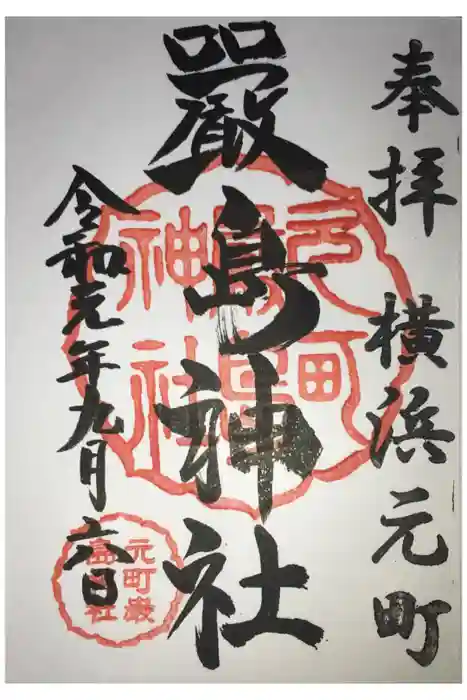 奉拝 横浜元町
嚴島神社
令和元年九月六日
元町嚴島神社
元町厳島神社